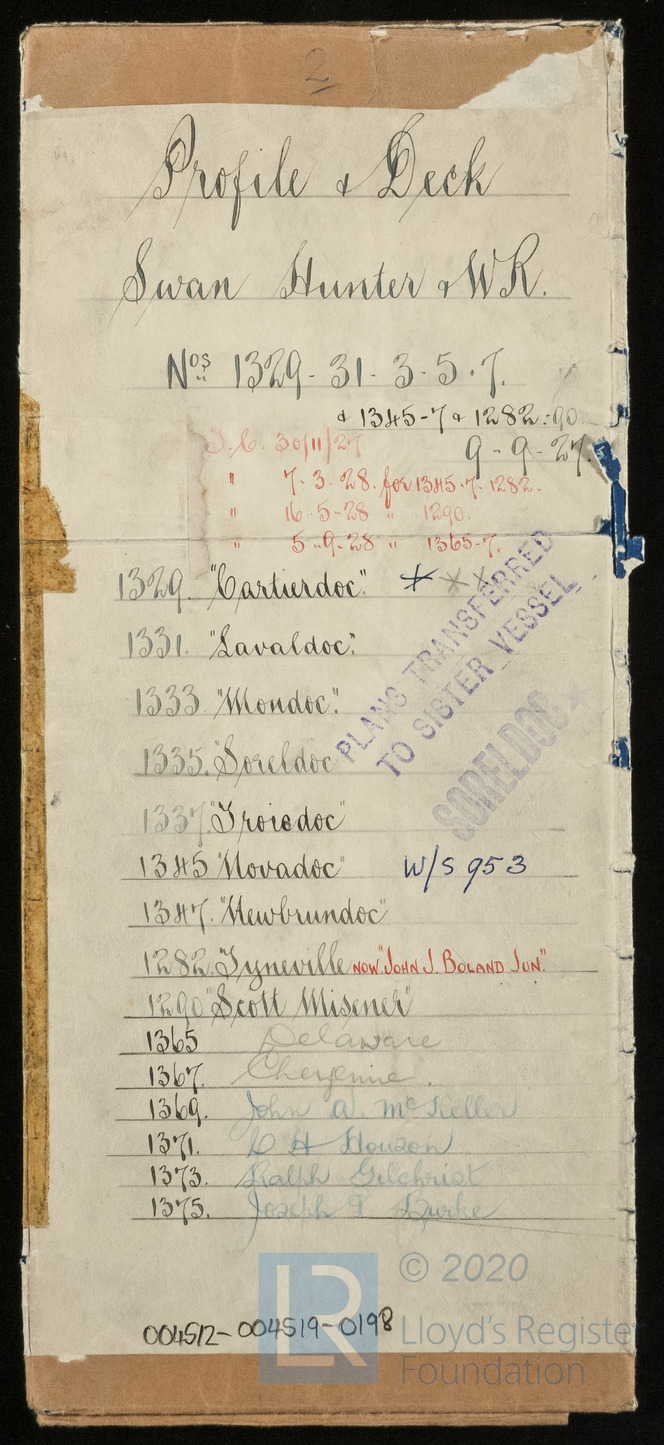 2
Profile & Deck
Swan Hunter & W R.
Nos 1329 - 31 - 3 - 5 - 7.
& 1345-7 & 1282-90
9 - 9 - 27.
30/11/27
" 7-3-28. for 1345-7-1282.
" 16-5-28 " 1290.
" 5-9-28 " 1365-7.
1329. "Cartierdoc".
1331. "Lavaldoc".
1333. "Mondoc".
1335. "Soreldoc
1337 "Troisdoc"
1345 "Novadoc" W/S 953
1347. "Newbrundoc"
1282. "Tyneville NOW "JOHN J. BOLAND JUN."
1290 "Scott Misener"
1365 Delaware
1367. Cheyenne.
1369. John A. McKellor
1371. C H Houson
1373. Ralph Gilchrist
1375. Joseph P Burke
PLANS TRANSFERRED
TO SISTER VESSEL
SORELDOC
004512-004519-0198
LR
© 2020
Lloyd's Register
Foundation